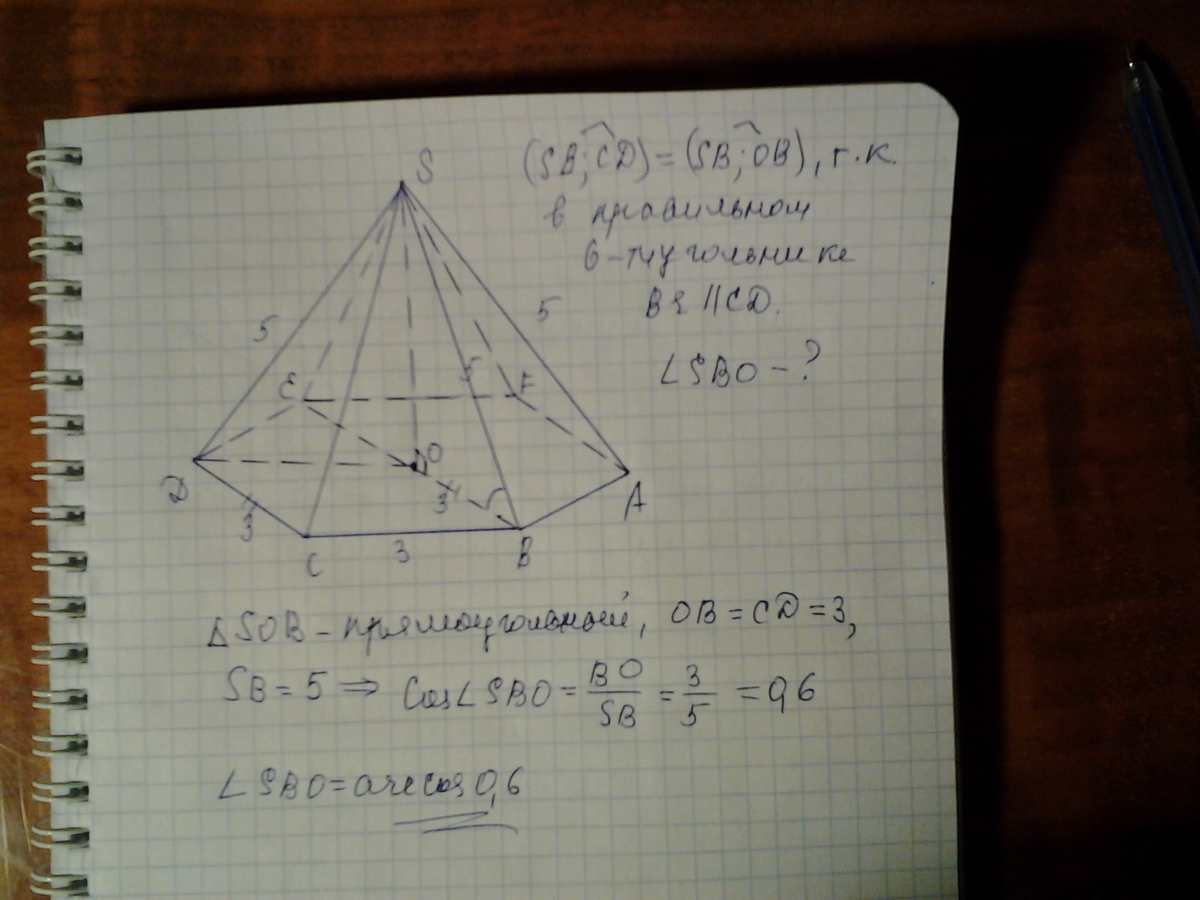 S
(SB; CD) = (SB; OB), т.к.
в правильном
6-тиугольнике
BE || CD.
∠SBO - ?
5
5
5
E
F
O
3
D
A
3
C
3
B
ΔSOB - прямоугольный, OB = CD = 3,
SB = 5 ⇒ Cos∠SBO = BO/SB = 3/5 = 0,6
∠SBO = arccos 0,6